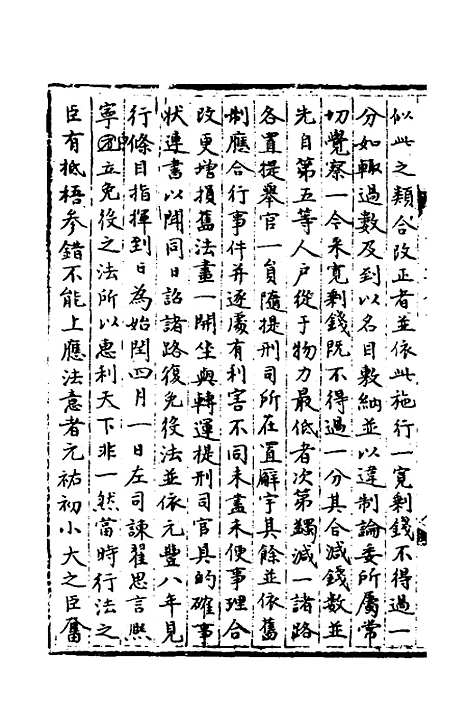 似此之類合改正者並依此施行一寬剩錢不得過一
分如輙過數及到以名目敷納並以違制論委所屬常
切覺察一今来寛剩錢既不得過一分其合减錢數並
先自第五等人户從于物力最低者次第蠲减一諸路
各置提舉官一負隨提刑司所在置廨宇其餘並依舊
制應合行事件并逐處有利害不同未盡未便事理合
改更增損舊法畫一開坐與轉運提刑司官具的確事
状連書以聞同日詔諸路復免役法並依元豐八年見
行條目指揮到日為始閏四月一日左司諫翟思言熈
寧團立免役之法所以惠利天下非一然當時行法之
臣有抵梧參錯不能上應法意者元祐初小大之臣奮